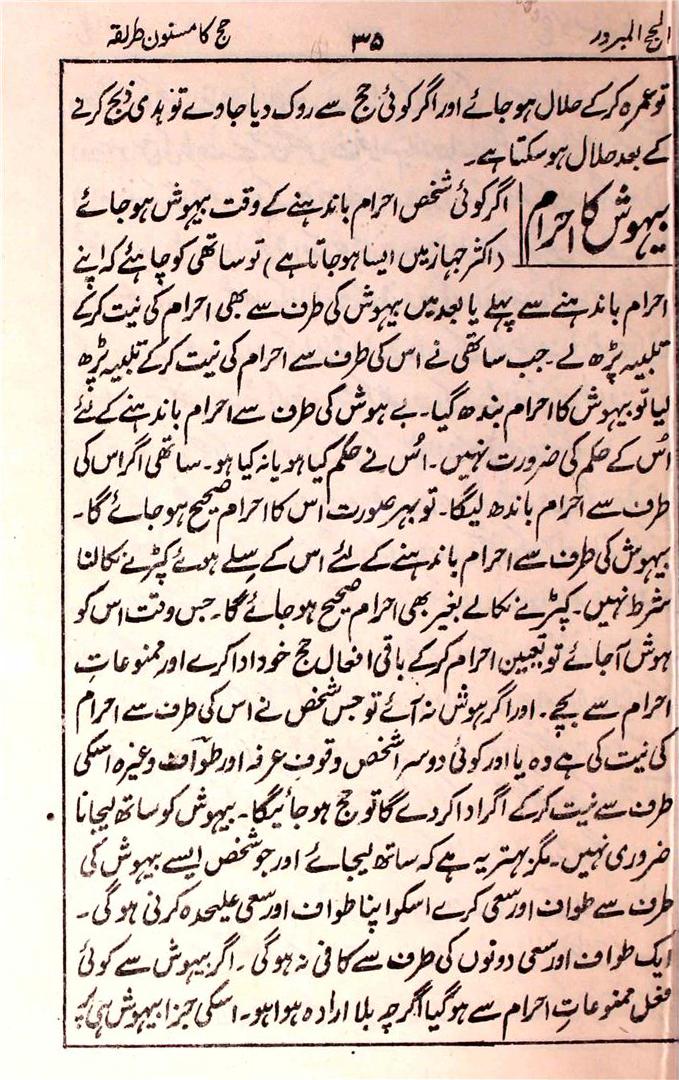 الحج المبرور ۳۵ حج کا مسنون طریقہ
تو عمرہ کرکے حلال ہو جائے اور اگر کوئی حج سے روک دیا جاوے تو ہدی ذبح کرنے
کے بعد حلال ہو سکتا ہے۔
بیہوش کا احرام
اگر کوئی شخص احرام باندھنے کے وقت بیہوش ہو جائے
(اکثر جہاز میں ایسا ہو جاتا ہے) تو ساتھی کو چاہئے کہ اپنے
احرام باندھنے سے پہلے یا بعد میں بیہوش کی طرف سے بھی احرام کی نیت کرکے
تلبیہ پڑھ لے۔ جب ساتھی نے اس کی طرف سے احرام کی نیت کرکے تلبیہ پڑھ
لیا تو بیہوش کا احرام بندھ گیا۔ بے ہوش کی طرف سے احرام باندھنے کے لئے
اُس کے حکم کی ضرورت نہیں۔ اُس نے حکم کیا ہو یا نہ کیا ہو۔ ساتھی اگر اس کی
طرف سے احرام باندھ لیگا۔ تو بہر صورت اس کا احرام صحیح ہو جائے گا۔
بیہوش کی طرف سے احرام باندھنے کے لئے اس کے سِلے ہوئے کپڑے نکالنا
شرط نہیں۔ کپڑے نکالے بغیر بھی احرام صحیح ہو جائے گا۔ جس وقت اس کو
ہوش آجائے تو تعیین احرام کرکے باقی افعال حج خود ادا کرے اور ممنوعاتِ
احرام سے بچے۔ اور اگر ہوش نہ آئے تو جس شخص نے اس کی طرف سے احرام
کی نیت کی ہے وہ یا اور کوئی دوسرا شخص وقوفِ عرفہ اور طواف وغیرہ اسکی
طرف سے نیت کرکے اگر ادا کردے گا تو حج ہو جائیگا۔ بیہوش کو ساتھ لیجانا
ضروری نہیں۔ مگر بہتر یہ ہے کہ ساتھ لیجائے اور جو شخص ایسے بیہوش کی
طرف سے طواف اور سعی کرے اسکو اپنا طواف اور سعی علیحدہ کرنی ہوگی۔
ایک طواف اور سعی دونوں کی طرف سے کافی نہ ہوگی۔ اگر بیہوش سے کوئی
فعل ممنوعاتِ احرام سے ہو گیا اگرچہ بلا ارادہ ہوا ہو۔ اسکی جزا بیہوش ہی پر